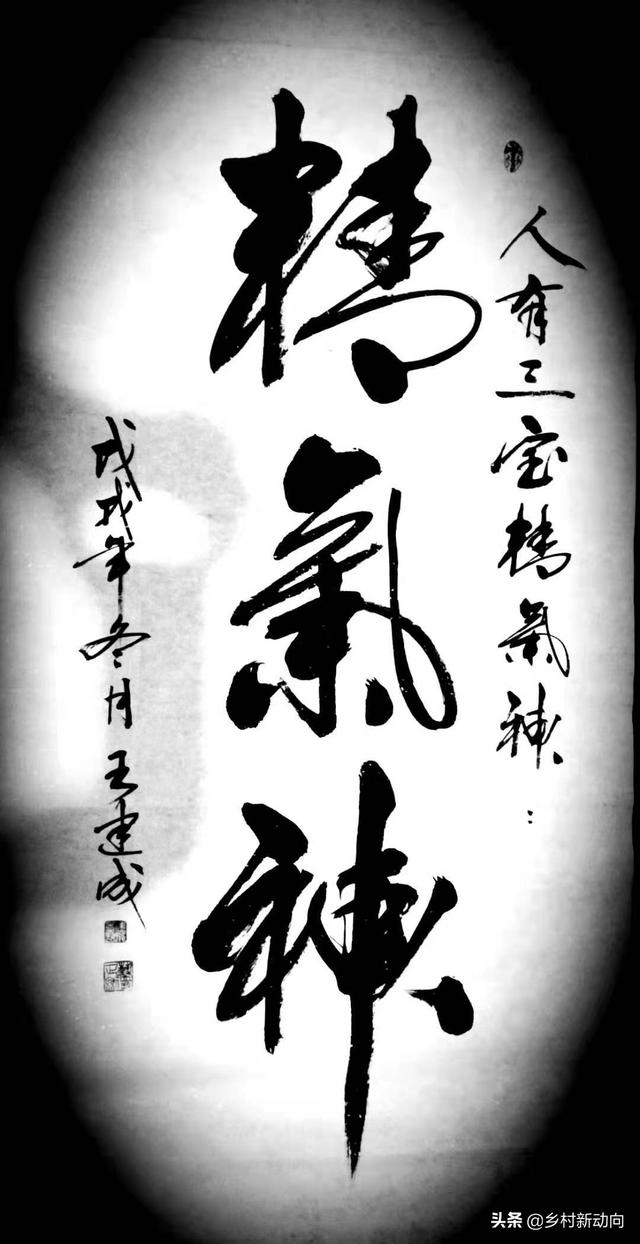 人有三宝精氣神:
精氣神
戊戌年冬月王建成
头条 @乡村新动向